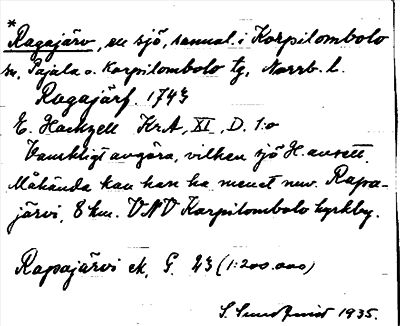 *
Ragajärv, en sjö, sannol. i Korpilombolo
sn, Pajala o. Korpilombolo tg, Norrb. l.
Ragajärf. 1743
E. Hackzell KrA, XI, D. 1:o
Vanskligt avgöra, vilken sjö H. avsett.
Måhända kan han ha menat nuv. Rapa-
järvi, 8 km. VNV Korpilombolo kyrkby.
Rapajärvi ek, G. 23 (1:200.000)
S. Sundqvist 1935.